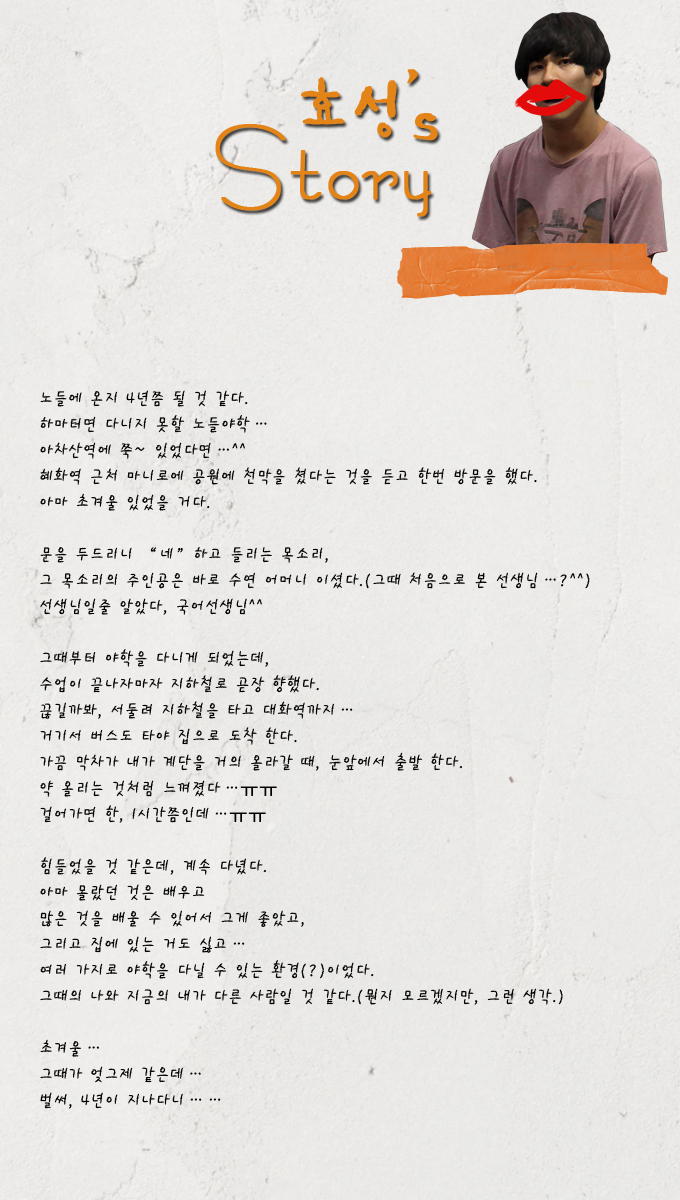 효성's
Story
노들에 온지 4년쯤 될 것 같다.
하마터면 다니지 못할 노들야학 …
아차산역에 쭉~ 있었다면 …^^
혜화역 근처 마니로에 공원에 천막을 쳤다는 것을 듣고 한번 방문을 했다.
아마 초겨울 있었을 거다.
문을 두드리니 “네” 하고 들리는 목소리,
그 목소리의 주인공은 바로 수연 어머니 이셨다.(그때 처음으로 본 선생님 …?^^)
선생님일줄 알았다, 국어선생님^^
그때부터 야학을 다니게 되었는데,
수업이 끝나자마자 지하철로 곧장 향했다.
끊길까봐, 서둘러 지하철을 타고 대화역까지 …
거기서 버스도 타야 집으로 도착 한다.
가끔 막차가 내가 계단을 거의 올라갈 때, 눈앞에서 출발 한다.
약 올리는 것처럼 느껴졌다 …ㅠㅠ
걸어가면 한, 1시간쯤인데 …ㅠㅠ
힘들었을 것 같은데, 계속 다녔다.
아마 몰랐던 것은 배우고
많은 것을 배울 수 있어서 그게 좋았고,
그리고 집에 있는 거도 싫고 …
여러 가지로 야학을 다닐 수 있는 환경(?)이었다.
그때의 나와 지금의 내가 다른 사람일 것 같다.(뭔지 모르겠지만, 그런 생각.)
초겨울 …
그때가 엊그제 같은데 …
벌써, 4년이 지나다니 … …